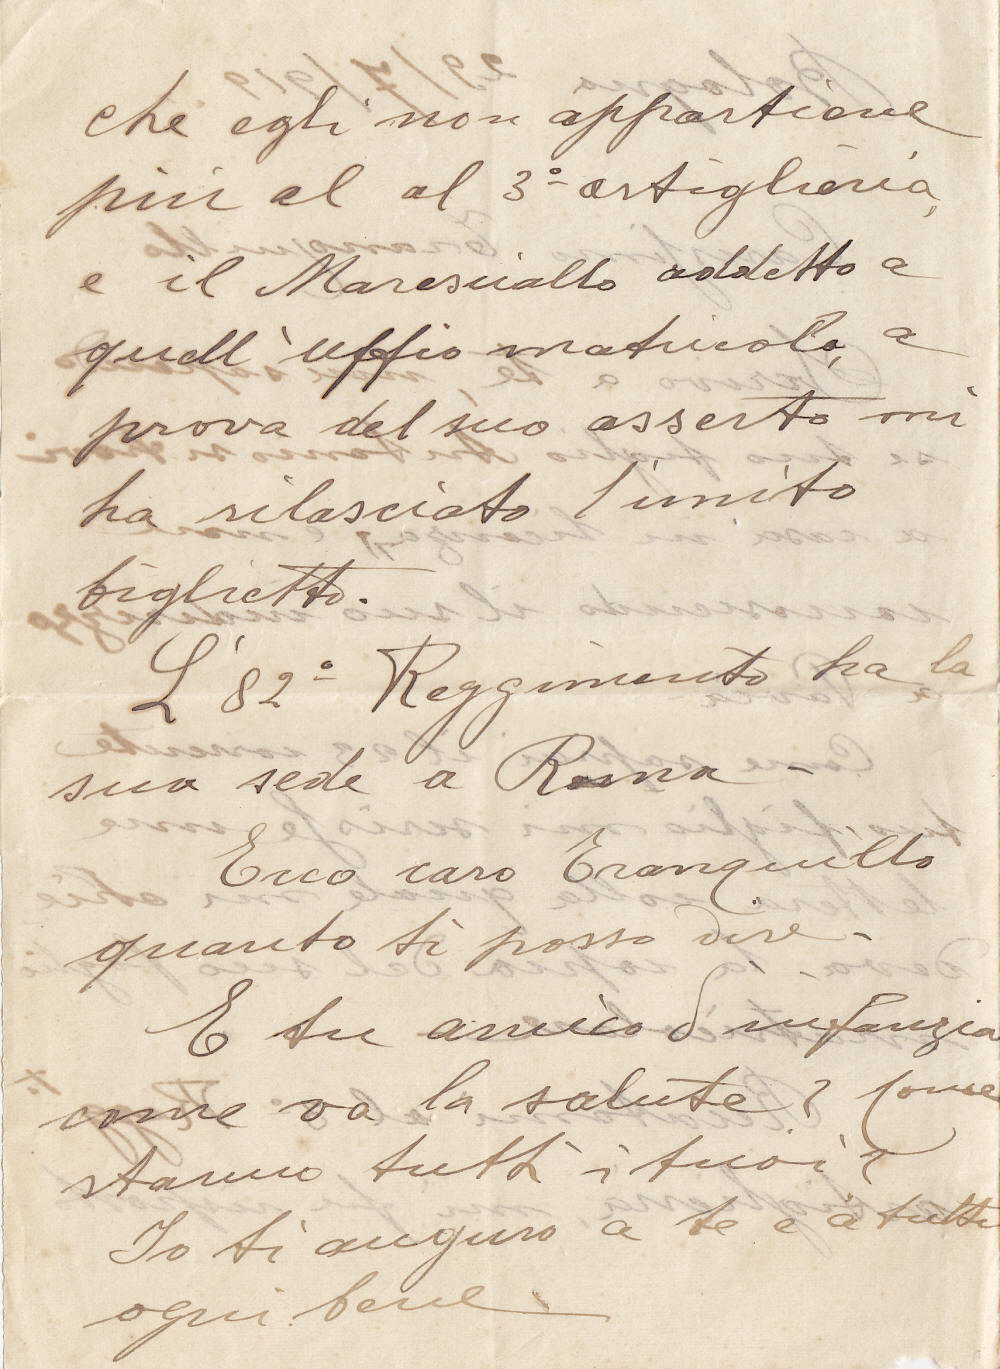 che egli non appartiene
più al al 3º artiglieria,
e il Maresciallo addetto a
quell'uffio matricola, a
prova del suo asserto mi
ha rilasciato l'unito
biglietto.
L'82º Reggimento ha la
sua sede a Roma -
Ecco caro Tranquillo
quanto ti posso dire -
E tu amico d'infanzia
come va la salute? Come
stanno tutti i tuoi?
Io ti auguro a te e a tutti
ogni bene